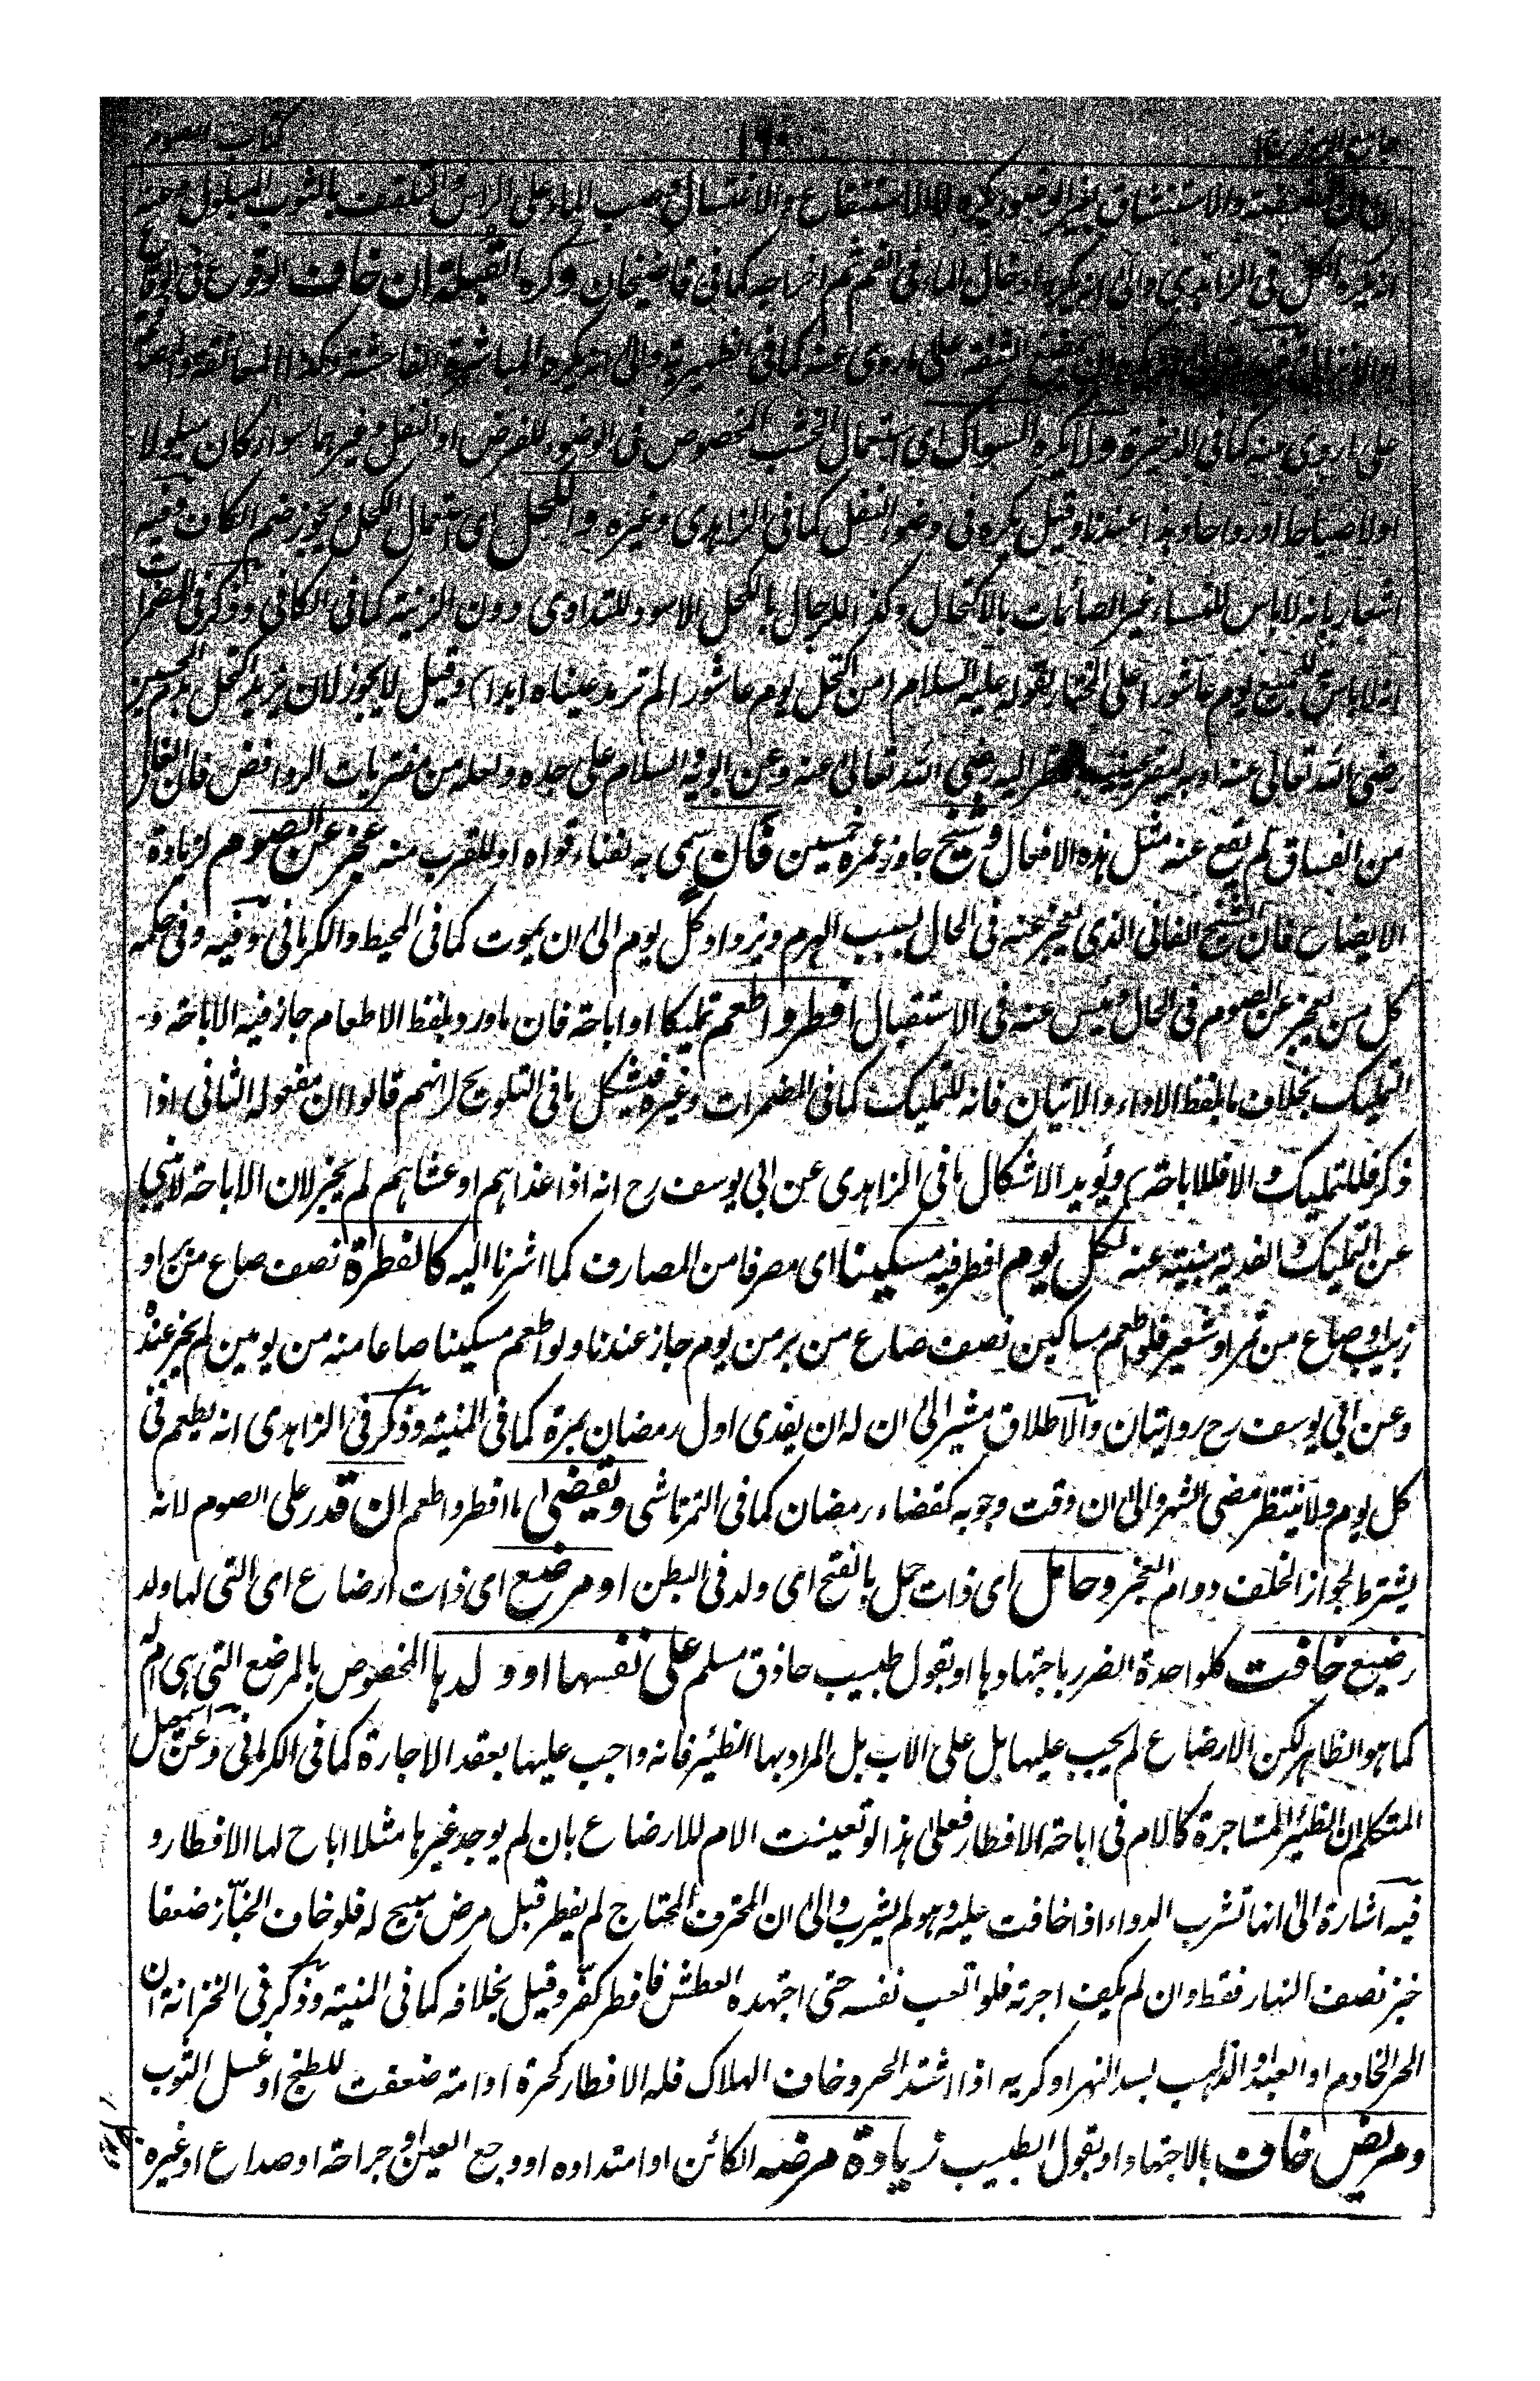 جامع الرموز ١٩٠ كتاب الصوم
المضمضة والاستنشاق بغير الوضوء يكره والاغتسال وصب الماء على الراس والتلفف بالثوب المبلول وعنه
انه يكره الكل كما فى الزاهدى والى انه يكره ادخال الماء فى الفم ثم اخراجه كما فى قاضيخان وكره القبلة ان خاف الوقوع فى الوقاع
او الانزال على ما روى عنه كما فى الظهيرية والى انه يكره المباشرة الفاحشة وكذا المعانقة والمصافحة
على ما روى عنه كما فى الذخيرة ولا يكره السواك اى استعمال الخشب المخصوص فى الوضوء للفرض او النفل وغيرهما سواء كان مبلولا
اولا صباحا اورواحا وهذا عندنا وقيل يكره فى وضوء النفل كما فى الزاهدى وغيره والكحل اى استعمال الكحل ويجوز ضم الكاف وفيه
اشعار بانه لاباس للنساء غير الصائمات بالاكتحال وكذا للرجال بالكحل الاسود للتداوى دون الزينة كما فى الكافى وذكر فى المضمرات
انه لاباس للجميع يوم عاشورا على المختار لقوله عليه السلام (من اكتحل يوم عاشورا لم ترمد عيناه ابدا) وقيل لايجوز لان يزيد اكتحل بدم الحسين
رضى الله تعالى عنه او به ليقر عينيه بالنظر اليه رضى الله تعالى عنه وعن ابويه السلام على جده ولعله من مفتريات الروافض فان الغالى
من الفساق لم يقع عنه مثل هذه الافعال وشيخ جاوز عمره خمسين فان سمى به لفناء قواه او للقرب منه عجز عن الصوم لزيادة
الايضاح فان الشيخ الفانى الذى يعجز عنه فى الحال بسبب الهرم ويزداد كل يوم الى ان يموت كما فى المحيط والكرمانى وفيه وفى حكمه
كل من يعجز عن الصوم فى الحال وئيس عنه فى الاستقبال افطر واطعم تمليكا او اباحة فان ماورد بلفظ الاطعام جاز فيه الاباحة و
التمليك بخلاف ما بلفظ الاداء والاتيان فانه للتمليك كما فى المضمرات وغيره فيشكل ما فى التلويح لانهم قالوا ان مفعوله الثانى اذا
ذكر فللتمليك والا فللاباحة ويؤيد الاشكال ما فى الزاهدى عن ابى يوسف رح انه اذا غداهم او عشاهم لم يجز لان الاباحة لا تنبى
عن التمليك والفدية منبئة عنه لكل يوم افطر فيه مسكينا اى مصرفا من المصارف كما اشرنا اليه كالفطرة نصف صاع من بر او
زبيب او صاع من تمر او شعير فلو اطعم مساكين نصف صاع من بر من يوم جاز عندنا ولو اطعم مسكينا صاعا منه من يومين لم يجز عنده
وعن ابى يوسف رح روايتان والاطلاق مشير الى ان له ان يفدى اول رمضان بمرة كما فى المنية وذكر فى الزاهدى انه يطعم فى
كل يوم ولا ينتظر مضى الشهر والى ان وقت وجوبه كقضاء رمضان كما فى التمرتاشى ويقضى اى ما افطر واطعم ان قدر على الصوم لانه
يشترط لجواز الخلف دوام العجز وحامل اى ذات حمل بالفتح اى ولد فى البطن او مرضع اى ذات ارضاع اى التى لها ولد
رضيع خافت كلواحدة الضرر باجتهادها او بقول طبيب حاذق مسلم على نفسها او ولدها المخصوص بالمرضع التى هى ام
كما هو الظاهر لكن الارضاع لم يجب عليها بل على الاب بل المراد بها الظئر فانه واجب عليها بعقد الاجارة كما فى الكرمانى وعن اسمعيل
المتكلم ان الظئر المستاجرة كالام فى اباحة الافطار فعلى هذا لو تعينت الام للارضاع بان لم يوجد غيرها مثلا اباح لها الافطار و
فيه اشارة الى انها تشرب الدواء اذا خافت عليه وهو لم يشرب والى ان المحترف المحتاج لم يفطر قبل مرض مبيح له فلو خاف الخباز ضعفا
خبز نصف النهار فقط وان لم يكف اجرته فلو اتعب نفسه حتى اجتهده العطش فافطر كفر وقيل بخلافه كما فى المنية وذكر فى الخزانة ان
الحر الخادم او العبد او الذاهب لسد النهر او كريه اذا اشتد الحر وخاف الهلاك فله الافطار كحرة او امة ضعفت للطبخ او غسل الثوب
ومريض خاف بالاجتهاد او بقول الطبيب زيادة مرضه الكائن او امتداده او وجع العين او جراحة او صداع او غيره